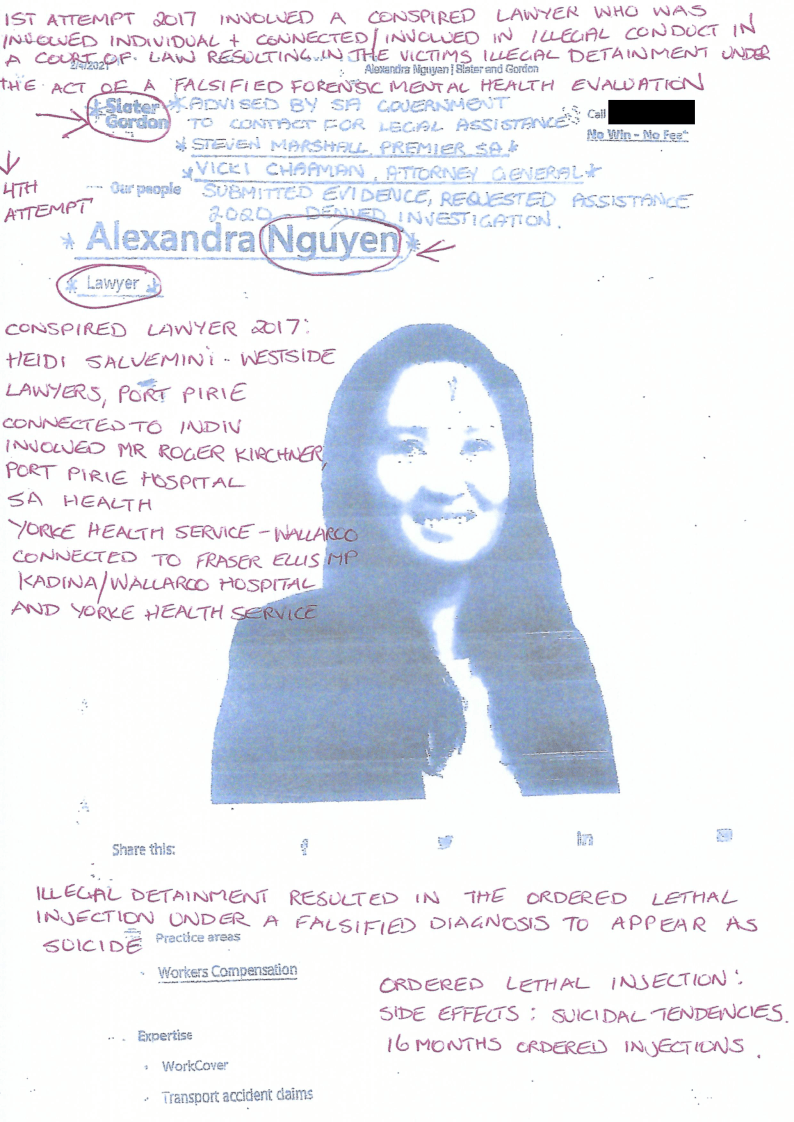 1ST ATTEMPT 2017 INVOLVED A CONSPIRED LAWYER WHO WAS
INVOLVED INDIVIDUAL + CONNECTED/INVOLVED IN ILLEGAL CONDUCT IN
A COURT OF LAW RESULTING IN THE VICTIMS ILLEGAL DETAINMENT UNDER
2/4/2021
Alexandra Nguyen | Slater and Gordon
THE ACT OF A FALSIFIED FORENSIC MENTAL HEALTH EVALUATION
* Slater * ADVISED BY SA GOVERNMENT
Gordon TO CONTACT FOR LEGAL ASSISTANCE Call
No Win - No Fee*
* STEVEN MARSHALL, PREMIER, SA *
* VICKI CHAPMAN, ATTORNEY GENERAL *
4TH
ATTEMPT
Our people SUBMITTED EVIDENCE, REQUESTED ASSISTANCE
2020 - DENIED INVESTIGATION.
* Alexandra Nguyen *
* Lawyer *
CONSPIRED LAWYER 2017:
HEIDI SALVEMINI - WESTSIDE
LAWYERS, PORT PIRIE
CONNECTED TO INDIV
INVOLVED MR ROGER KIRCHNER,
PORT PIRIE HOSPITAL
SA HEALTH
YORKE HEALTH SERVICE - WALLAROO
CONNECTED TO FRASER ELLIS MP
KADINA/WALLAROO HOSPITAL
AND YORKE HEALTH SERVICE
Share this:
ILLEGAL DETAINMENT RESULTED IN THE ORDERED LETHAL
INJECTION UNDER A FALSIFIED DIAGNOSIS TO APPEAR AS
SUICIDE
Practice areas
Workers Compensation
ORDERED LETHAL INJECTION:
SIDE EFFECTS: SUICIDAL TENDENCIES.
16 MONTHS ORDERED INJECTIONS.
Expertise
WorkCover
Transport accident claims